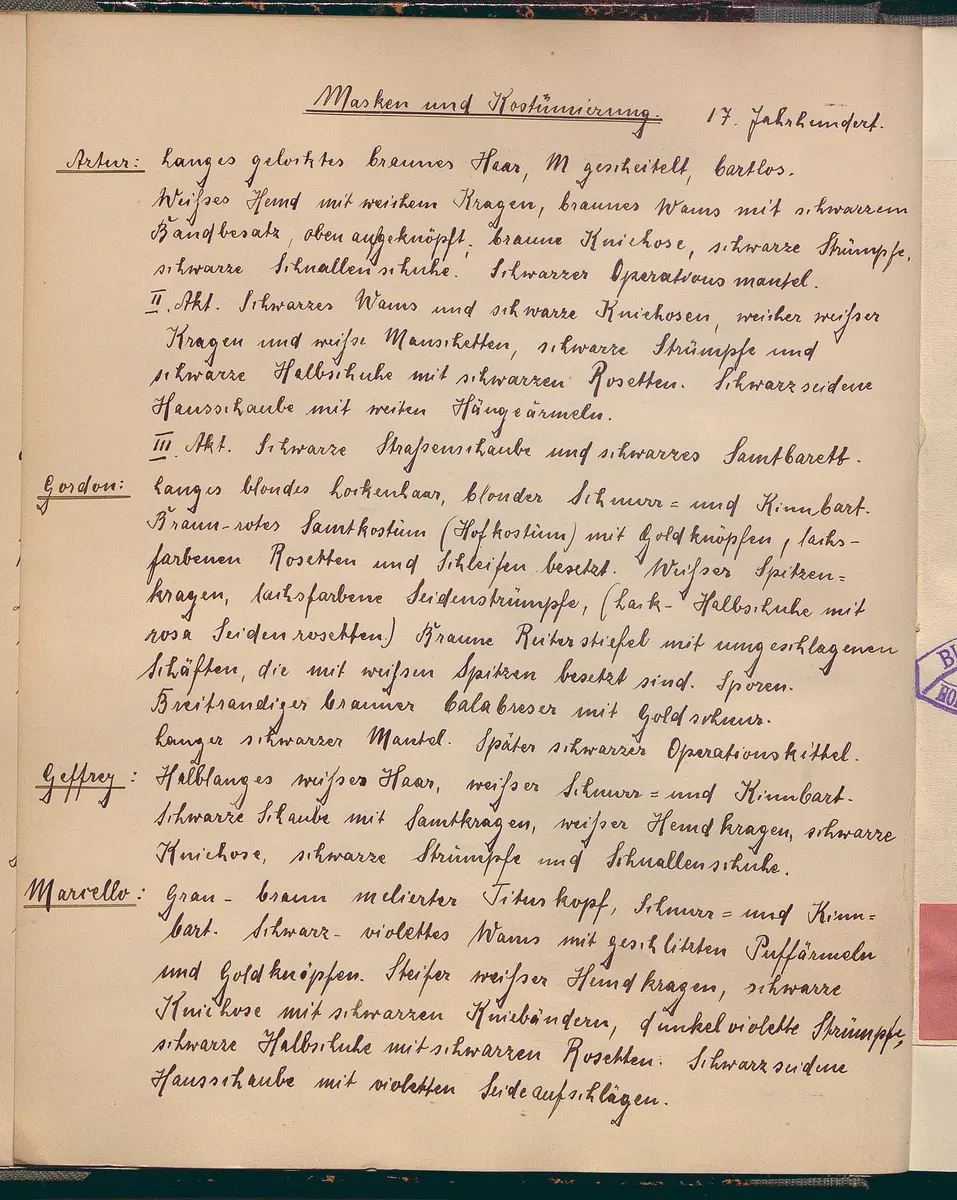 Masken und Kostümierung. 17. Jahrhundert.
Artur: Langes gelocktes braunes Haar, M gescheitelt, bartlos.
Weißes Hemd mit weichem Kragen, braunes Wams mit schwarzem
Bandbesatz, oben aufgeknöpft, braune Kniehose, schwarze Strümpfe,
schwarze Schnallenschuhe. Schwarzer Operationsmantel.
II. Akt. Schwarzes Wams und schwarze Kniehosen, weicher weißer
Kragen und weiße Manschetten, schwarze Strümpfe und
schwarze Halbschuhe mit schwarzen Rosetten. Schwarzseidene
Hausschaube mit weiten Hängeärmeln.
III. Akt. Schwarze Straßenschaube und schwarzes Samtbarett.
Gordon: Langes blondes Lockenhaar, blonder Schnurr= und Kinnbart.
Braun-rotes Samtkostüm (Hofkostüm) mit Goldknöpfen, lachs-
farbenen Rosetten und Schleifen besetzt. Weißer Spitzen=
kragen, lachsfarbene Seidenstrümpfe, (Lack- Halbschuhe mit
rosa Seidenrosetten.) Braune Reiterstiefel mit umgeschlagenen
Schäften, die mit weißen Spitzen besetzt sind. Sporen.
Breitrandiger brauner Calabreser mit Goldschnur.
Langer schwarzer Mantel. Später schwarzer Operationskittel.
Geffrey: Halblanges weißes Haar, weißer Schnurr= und Kinnbart.
Schwarze Schaube mit Samtkragen, weißer Hemdkragen, schwarze
Kniehose, schwarze Strümpfe und Schnallenschuhe.
Marcello: Grau- braun melierter Tituskopf, Schnurr= und Kinn=
bart. Schwarz- violettes Wams mit geschlitzten Puffärmeln
und Goldknöpfen. Steifer weißer Hemdkragen, schwarze
Kniehose mit schwarzen Kniebändern, dunkelviolette Strümpfe,
schwarze Halbschuhe mit schwarzen Rosetten. Schwarzseidene
Hausschaube mit violetten Seideaufschlägen.